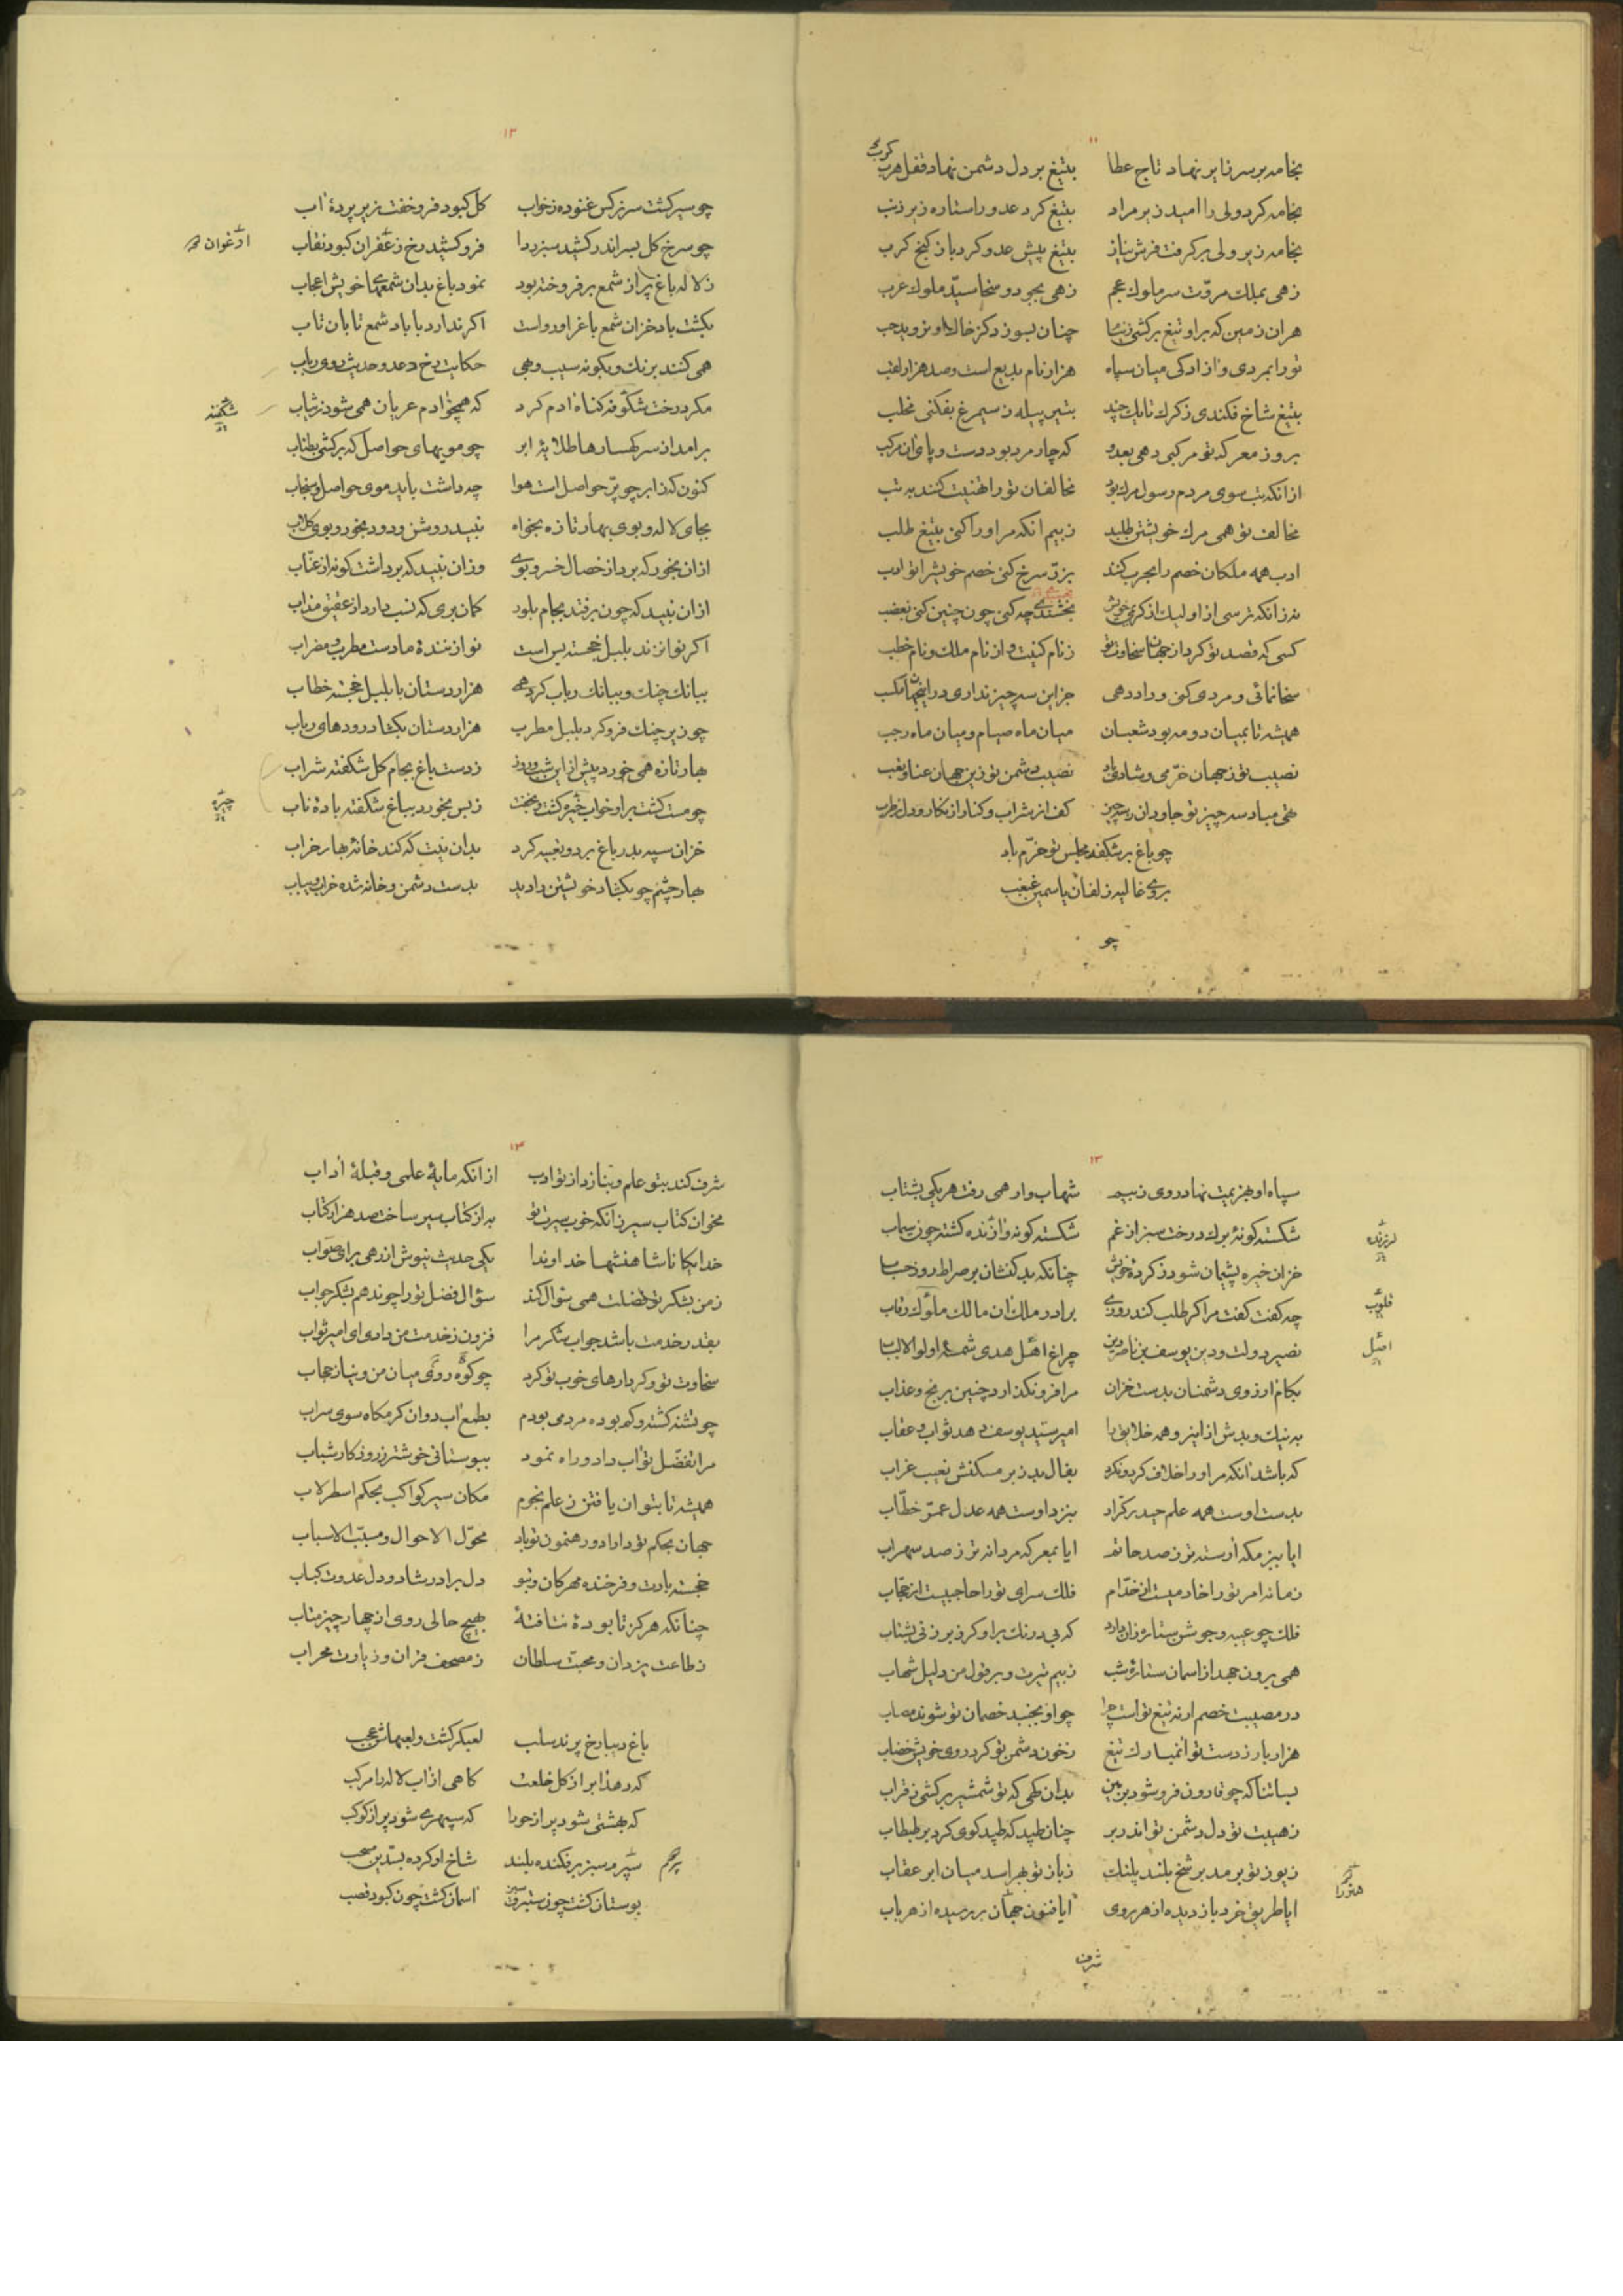 بخامه بر سر زایر نهاد تاج عطا بتیغ بر دل دشمن نهاد قفل هرب
کرب
بخامه کرد ولی را امید زیر مراد بتیغ کرد عدو را ستاره زیر ذنب
بخامه زیر ولی بر کرفت فرش نیاز بتیغ پیش عدو کرد باز کنج کرب
زهی بملك مروّت سر ملوك عجم زهی بجود و سخا سیّد ملوك عرب
هران زمین که بر او تیغ بر کشی
تو رایمردی و ازادکی میان سپاه هزار نام بدیع است و صد هزار لقب
بتیغ شاخ فکندی ز کرك تا یك چند بتیر پیله ز سیمرغ بفکنی مخلب
بروز معرکه تو مرکبی دهی بعدو که چار مرد بود دست و پای ان مرکب
از انکه تب سوی مردم رسول مرك بود مخالفان تو را تهنیت کنند به تب
مخالف تو همی مرك خویشتن طلبد ز بیم انکه مر او را کنی بتیغ طلب
ادب همه ملکان خصم را بحرب کنند بزدّ سرخ کنی خصم خویش را تو ادب
نه زانکه ترسی از او لیك از کریمی خویش بخشندگی چه کنی چون چنین کنی بغضب
کسی که قصد تو کرد از جهان سخاوت تو ز نام کنیت و از نام ملك و نام خطب
سخا نمائی و مردی کنی و داد دهی جز این سه چیز نداری در اینجهان مکسب
همیشه تا بمیان دو مه بود شعبان میان ماه صیام و میان ماه رجب
نصیب تو ز جهان خرّمی و شادی باد نصیب دشمن تو زین جهان عنا و تعب
تهی مباد سه چیز تو جاودان ز سه چیز کف از شراب و کنار از نکار و دل ز طرب
چو باغ بر شکفد مجلس تو خرّم باد
بروی غالیه زلفان یاسمین غبغب
چو
۱۲
چو سیر کشت سر نرکس غنوده ز خواب کل کبود فرو خفت زیر پردۀ اب
چو سرخ کل بسر اندر کشید سبز ردا فرو کشید رخ زعفران کبود نقاب
ارغوان
ز لاله باغ پر از شمع بر فروخته بود نمود باغ بدان شمعهای خویش اعجاب
بکشت باد خزان شمع باغرا و رواست اکر ندارد با باد شمع تابان تاب
همی کنند برنك و بکونه سیب و بهی حکایت رخ دعد و حدیث روی رباب
مکر درخت شکوفه کناه ادم کرد که همچو ادم عریان همی شود ز ثیاب
شکفته
بر امد از سر کهسارها طلایۀ ابر چو مویهای حواصل که بر کشی بطناب
کنون که زابر چو پرّ حواصل است هوا چه داشت باید موی حواصل و سنجاب
بجای لاله و بوی بهار تازه بخواه نبید روشن و دود بخور و بوی کلاب
ازان بخور که برد از خصال خسرو بوی وزان نبید که برداشت کونه از عنّاب
ازان نبید که چون بر فتد بجام بلور کمان بری که نسب دارد از عقیق مذاب
اکر نوا نزند بلبل خجسته بس است نوا زنندۀ ما دست مطرب و مضراب
ببانك چنك و ببانك رباب کرد همی هزار دستان با بلبل خجسته خطاب
چو زیر چنك فرو کرد بلبل مطرب هزار دستان بکشاد رودهای رباب
بهار تازه همی خورد پیش از این شب و روز ز دست باغ بجام کل شکفته شراب
چو مست کشت بر او خواب خیره کشت و بخفت ز بس بخورد بباغ شکفته بادۀ ناب
چیره
خزان سپه بدر باغ برد و تعبیه کرد بدان نیت که کند خانۀ بهار خراب
بهار چشم چو بکشاد خویشتن را دید بدست دشمن و خانه شده خراب و یباب
۱۳
سپاه او بهزیمت نهاد روی ز بیم شهاب وار همی رفت هر یکی بشتاب
شکسته کونۀ برك درخت سبز از غم شکسته کونه و لرزنده کشته چون سیماب
لرزنده
خزان خیره پشیمان شود ز کردۀ خویش چنانکه بد کنشان بر صراط روز حساب
چه کفت کفت مرا کر طلب کند روزی برادر ملك ان مالك ملوك رقاب
قلوب
نصیر دولت و دین یوسف بن ناصر دین چراغ اهل هدی شمسۀ اولوا الالباب
اصل
بکام ارزوی دشمنان بدست خزان مرا فرو نکذارد چنین برنج و عذاب
به نیك و بد پس از ایزد همه خلایق را امیر سیّد یوسف دهد ثواب و عقاب
که باشد انکه مر او را خلاف کرد و نکرد بفال بد ز بر مسکنش نعیب غراب
بدست اوست همه علم حیدر کرّار بنزد اوست همه عدل عمّر خطّاب
ایا ببزمکه اراسته تر ز صد حاتم ایا بمعرکه مردانه تر ز صد سهراب
زمانه امر تو را خادمیست از خدّام فلك سرای تو را حاجبیست از حجّاب
فلك چو عیبه و جوشن ستاره زان دارد که بی درنك بر او کرز بر زنی بشتاب
همی برون جهد از اسمان ستارۀ شب ز بیم تیرت و بر قول من دلیل شهاب
در مصیبت خصم ار نه تیغ تو است چرا چو او بجنبد خصمان تو شوند مصاب
هزار بار ز دست تو انمبارك تیغ ز خون دشمن تو کرد روی خویش خضاب
بسا تنا که چو قارون فرو شود بزمین بدان کهی که تو شمشیر بر کشی ز قراب
ز هیبت تو دل دشمن تو اندر بر چنان طپد که طپد کوی کرد بر طبطاب
ز یوز تو برمد بر شخ بلند پلنك ز باز تو بهراسد میان ابر عقاب
ایا طریق خرد باز دیده از هر روی ایا فنون جهان بر رسیده از هر باب
هنر را
شرف
۱۴
شرف کند بتو علم و بنازد از تو ادب از انکه مایۀ علمی و قبلۀ اداب
مخوان کتاب سیر زانکه خوب سیرت تو به از کتاب سیر ساخت صد هزار کتاب
خدایکانا شاهنشها خداوندا یکی حدیث نیوش از رهی برای صواب
ز من بشکر تو فضلت همی سئوال کند سؤال فضل تو را چون دهم بشکر جواب
بقدر خدمت باشد جواب شکر مرا فزون ز خدمت من دادی ای امیر ثواب
سخاوت تو و کردارهای خوب تو کرد چو کوه روی میان من و نیاز حجاب
چو تشنه کشته و کم بوده مردمی بودم بطمع اب دوان کرمکاه سوی سراب
مرا تفضّل تو اب داد و راه نمود ببوستانی خوشتر ز روزکار شباب
همیشه تا بتوان یافتن ز علم نجوم مکان سیر کواکب بحکم اسطرلاب
جهان بحکم تو دارا و رهنمون تو باد محوّل الاحوال و مسبّب الاسباب
خجسته بادت و فرخنده مهرکان و بتو دل برادر شاد و دل عدوت کباب
چنانکه هرکز تا بودۀ نتافتۀ بهیچ حالی روی از چهار چیز متاب
ز طاعت یزدان و محبّت سلطان ز مصحف قران و ز زیارت محراب
باغ دیبا رخ پرند سلب لعبکر کشت و لعبهاش عجب
که دهد ابر از کل خلعت کاهی از اب لاله را مرکب
که بهشتی شود پر از حورا که سپهری شود پر از کوکب
پرچم
سبز بر فکنده بلند شاخ او کرده بسّدین مسحب
بوستان کشت چون ستبرق سبز اسمان کشت چون کبود قصب